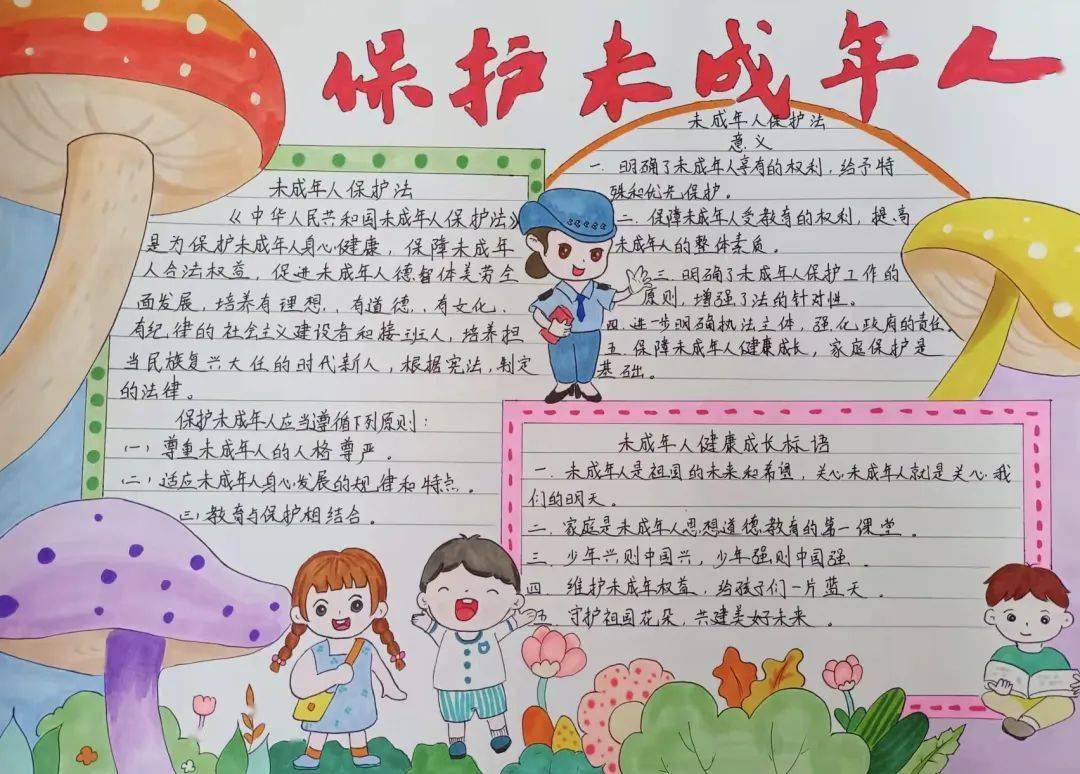 保护未成年人
未成年人保护法
《中华人民共和国未成年人保护法》
是为保护未成年人身心健康，保障未成年
人合法权益，促进未成年人德智体美劳全
面发展，培养有理想、有道德、有文化、
有纪律的社会主义建设者和接班人，培养担
当民族复兴大任的时代新人，根据宪法，制定
的法律。
保护未成年人应当遵循下列原则：
（一）尊重未成年人的人格尊严。
（二）适应未成年人身心发展的规律和特点。
三）教育与保护相结合。
未成年人保护法
意义
一、明确了未成年人享有的权利，给予特
殊和优先保护。
二、保障未成年人受教育的权利，提高
未成年人的整体素质。
三、明确了未成年人保护工作的
原则，增强了法的针对性。
四、进一步明确执法主体，强化政府的责任。
五、保障未成年人健康成长，家庭保护是
基础。
未成年人健康成长标语
一、未成年人是祖国的未来和希望，关心未成年人就是关心我
们的明天。
二、家庭是未成年人思想道德教育的第一课堂。
三、少年兴则中国兴，少年强则中国强。
四、维护未成年权益，给孩子们一片蓝天。
五、守护祖国花朵，共建美好未来。